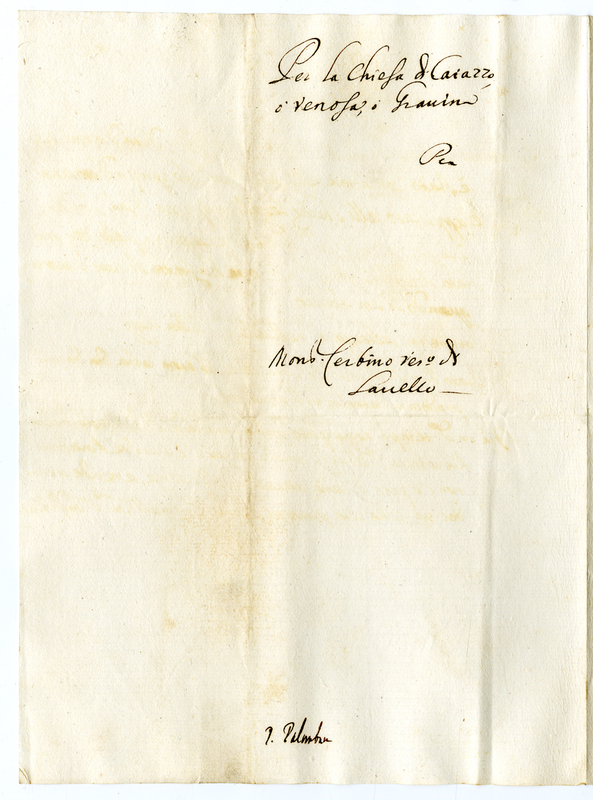 Per la Chiesa di Caiazzo,
ò Venosa, ò Gravina
Per
Mons.r Cerbino Vesc.o di
Lavello